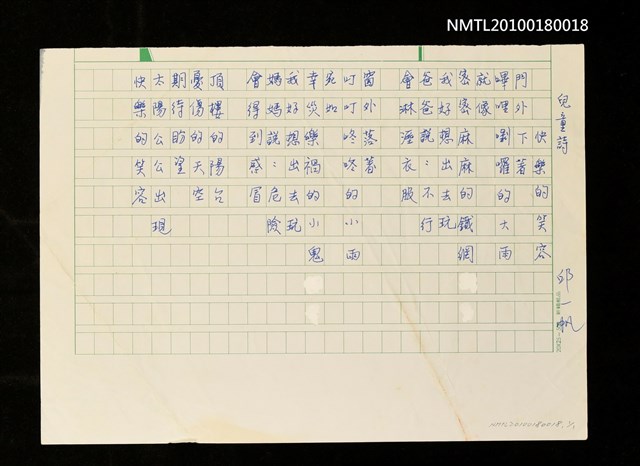 NMTL20100180018
兒童詩
快樂的笑容
邱一帆
門外下著
嗶哩喇囉的大雨
就像
密密麻麻的鐵網
我好想出去玩
爸爸說:不行
會淋溼衣服
窗外落著
叮叮咚咚的小雨
宛如
幸災樂禍的小鬼
我好想出去玩
媽媽說:危險
會得到惑冒
頂樓的陽台
憂傷的天空
期待盼望
太陽公公出現
快樂的笑容
NMTL20100180018.1/1